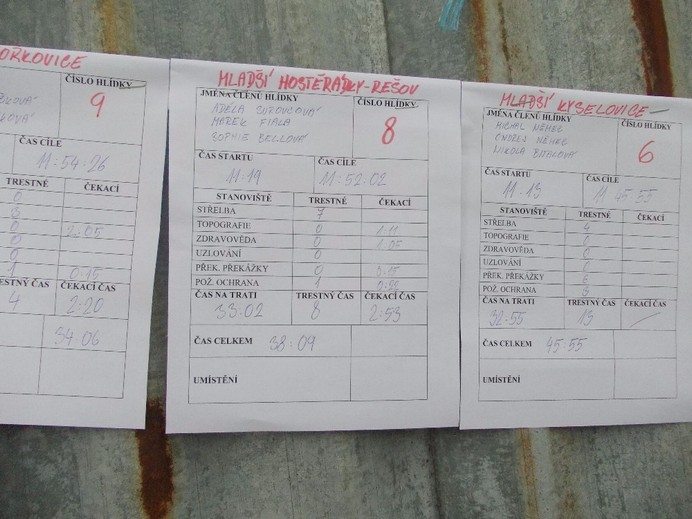 OŘKOVICE
ČÍSLO HLÍDKY
9
ČAS CÍLE
11:54·26
TRESTNÉ ČEKACÍ
0
3
0 2:05
0
0
1 0:15
TRESTNÝ ČAS ČEKACÍ ČAS
4 2:20
34:06
MLADŠÍ HOŠTĚRÁDKY-REŠOV
JMÉNA ČLENŮ HLÍDKY ČÍSLO HLÍDKY
ADÉLA SUROVCOVÁ
MAREK FIALA
SOPHIE BELLOVÁ
8
ČAS STARTU ČAS CÍLE
11:19 11:52:02
STANOVIŠTĚ TRESTNÉ ČEKACÍ
STŘELBA 7
TOPOGRAFIE 0 1:11
ZDRAVOVĚDA 0
UZLOVÁNÍ 0
PŘEK. PŘEKÁŽKY 0
POŽ. OCHRANA 1
ČAS NA TRATI TRESTNÝ ČAS ČEKACÍ ČAS
33:02 8 2:53
ČAS CELKEM 38:09
UMÍSTĚNÍ
MLADŠÍ KYSELOVICE
JMÉNA ČLENŮ HLÍDKY ČÍSLO HLÍDKY
MICHAL NĚMEC
ONDŘEJ NĚMEC
NIKOLA
6
ČAS STARTU ČAS CÍLE
11:13 11 45:55
STANOVIŠTĚ TRESTNÉ ČEKACÍ
STŘELBA 4
TOPOGRAFIE 0
ZDRAVOVĚDA
UZLOVÁNÍ 0
PŘEK. PŘEKÁŽKY
POŽ. OCHRANA 3
ČAS NA TRATI TRESTNÝ ČAS ČEKACÍ ČAS
32:55 13
ČAS CELKEM 45:55
UMÍSTĚNÍ